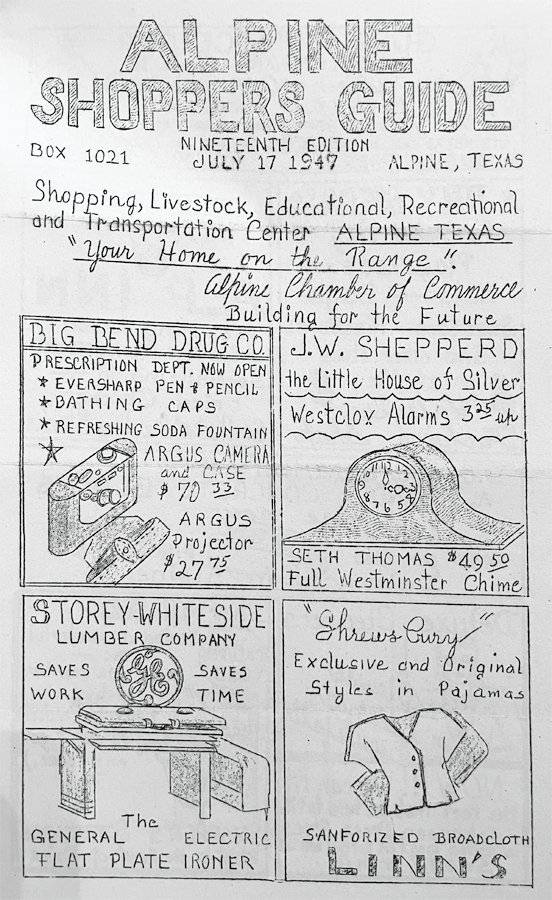 ALPINE
SHOPPERS GUIDE
NINETEENTH EDITION
BOX 1021 JULY 17 1947 ALPINE, TEXAS
Shopping, Livestock, Educational, Recreational
and Transportation Center ALPINE TEXAS
"Your Home on the Range".
Alpine Chamber of Commerce
Building for the Future
BIG BEND DRUG CO.
PRESCRIPTION DEPT. NOW OPEN
* EVERSHARP PEN & PENCIL
* BATHING CAPS
* REFRESHING SODA FOUNTAIN
* ARGUS CAMERA
and CASE
$70 33
ARGUS
Projector
$27 75
J.W. SHEPPERD
the Little House of Silver
Westclox Alarm's 3 25 up
SETH THOMAS $49 50
Full Westminster Chime
STOREY-WHITESIDE
LUMBER COMPANY
SAVES WORK
GE
SAVES TIME
The
GENERAL ELECTRIC
FLAT PLATE IRONER
"Shrewsbury"
Exclusive and Original
Styles in Pajamas
SANFORIZED BROADCLOTH
LINN'S